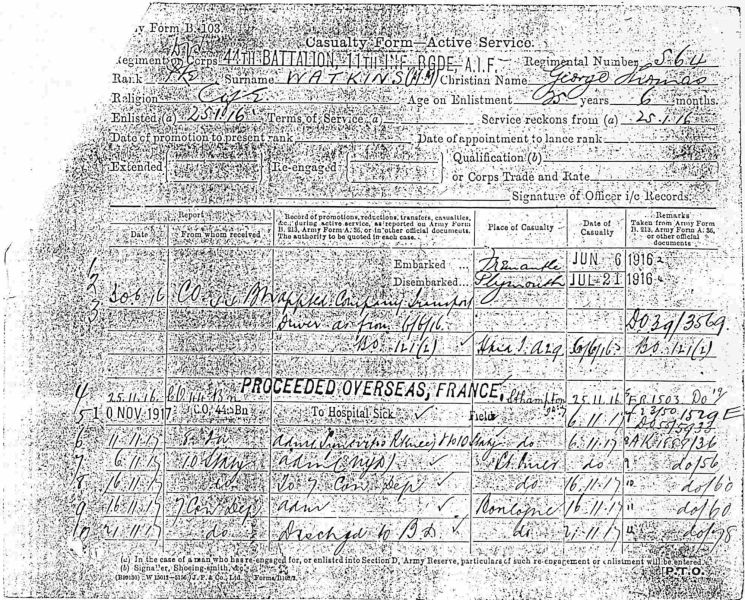 y Form B. 103.
Casualty Form—Active Service.
Regiment or Corps 44TH BATTALION, 11TH INF. BGDE. A.I.F. Regimental Number 564
Rank Pte Surname WATKINS Christian Name George Thomas
Religion C of E Age on Enlistment 25 years 6 months.
Enlisted (a) 25.1.16 Terms of Service (a) Service reckons from (a) 25.1.16
Date of promotion to present rank Date of appointment to lance rank
Extended Re-engaged Qualification (b)
or Corps Trade and Rate
Signature of Officer i/c Records.
Report
Date From whom received
Record of promotions, reductions, transfers, casualties,
&c., during active service, as reported on Army Form
B. 213, Army Form A. 36, or in other official documents.
The authority to be quoted in each case.
Place of Casualty
Date of
Casualty
Remarks
Taken from Army Form
B. 213, Army Form A. 36,
or other official
documents
1 Embarked ... Fremantle JUN 6 1916
2 Disembarked ... Plymouth JUL 21 1916
3 30.6.16 CO Appted. Company Transport
Driver as from 6/6/16. DO39/3569
BO 121(2) 6/6/16 BO 121(2)
4 25.11.16 CO 44 Bn PROCEEDED OVERSEAS, FRANCE, Sthampton 25.11.16 FR1503
5 10 NOV 1917 CO, 44 Bn To Hospital Sick Field 6.11.17
6 11.11.17 adm Synovitis R Knee do 6.11.17
7 6.11.17 10 Staty adm (NYD) do do/56
8 16.11.17 do To 7 Con Dep do 16.11.17 do/60
9 16.11.17 7 Con Dep adm Boulogne 16.11.17 do/60
10 21.11.17 do Dischgd to BD do 21.11.17 do/78
(a) In the case of a man who has re-engaged for, or enlisted into Section D, Army Reserve, particulars of such re-engagement or enlistment will be entered.
(b) Signaller, Shoeing-smith, &c.
P.T.O.